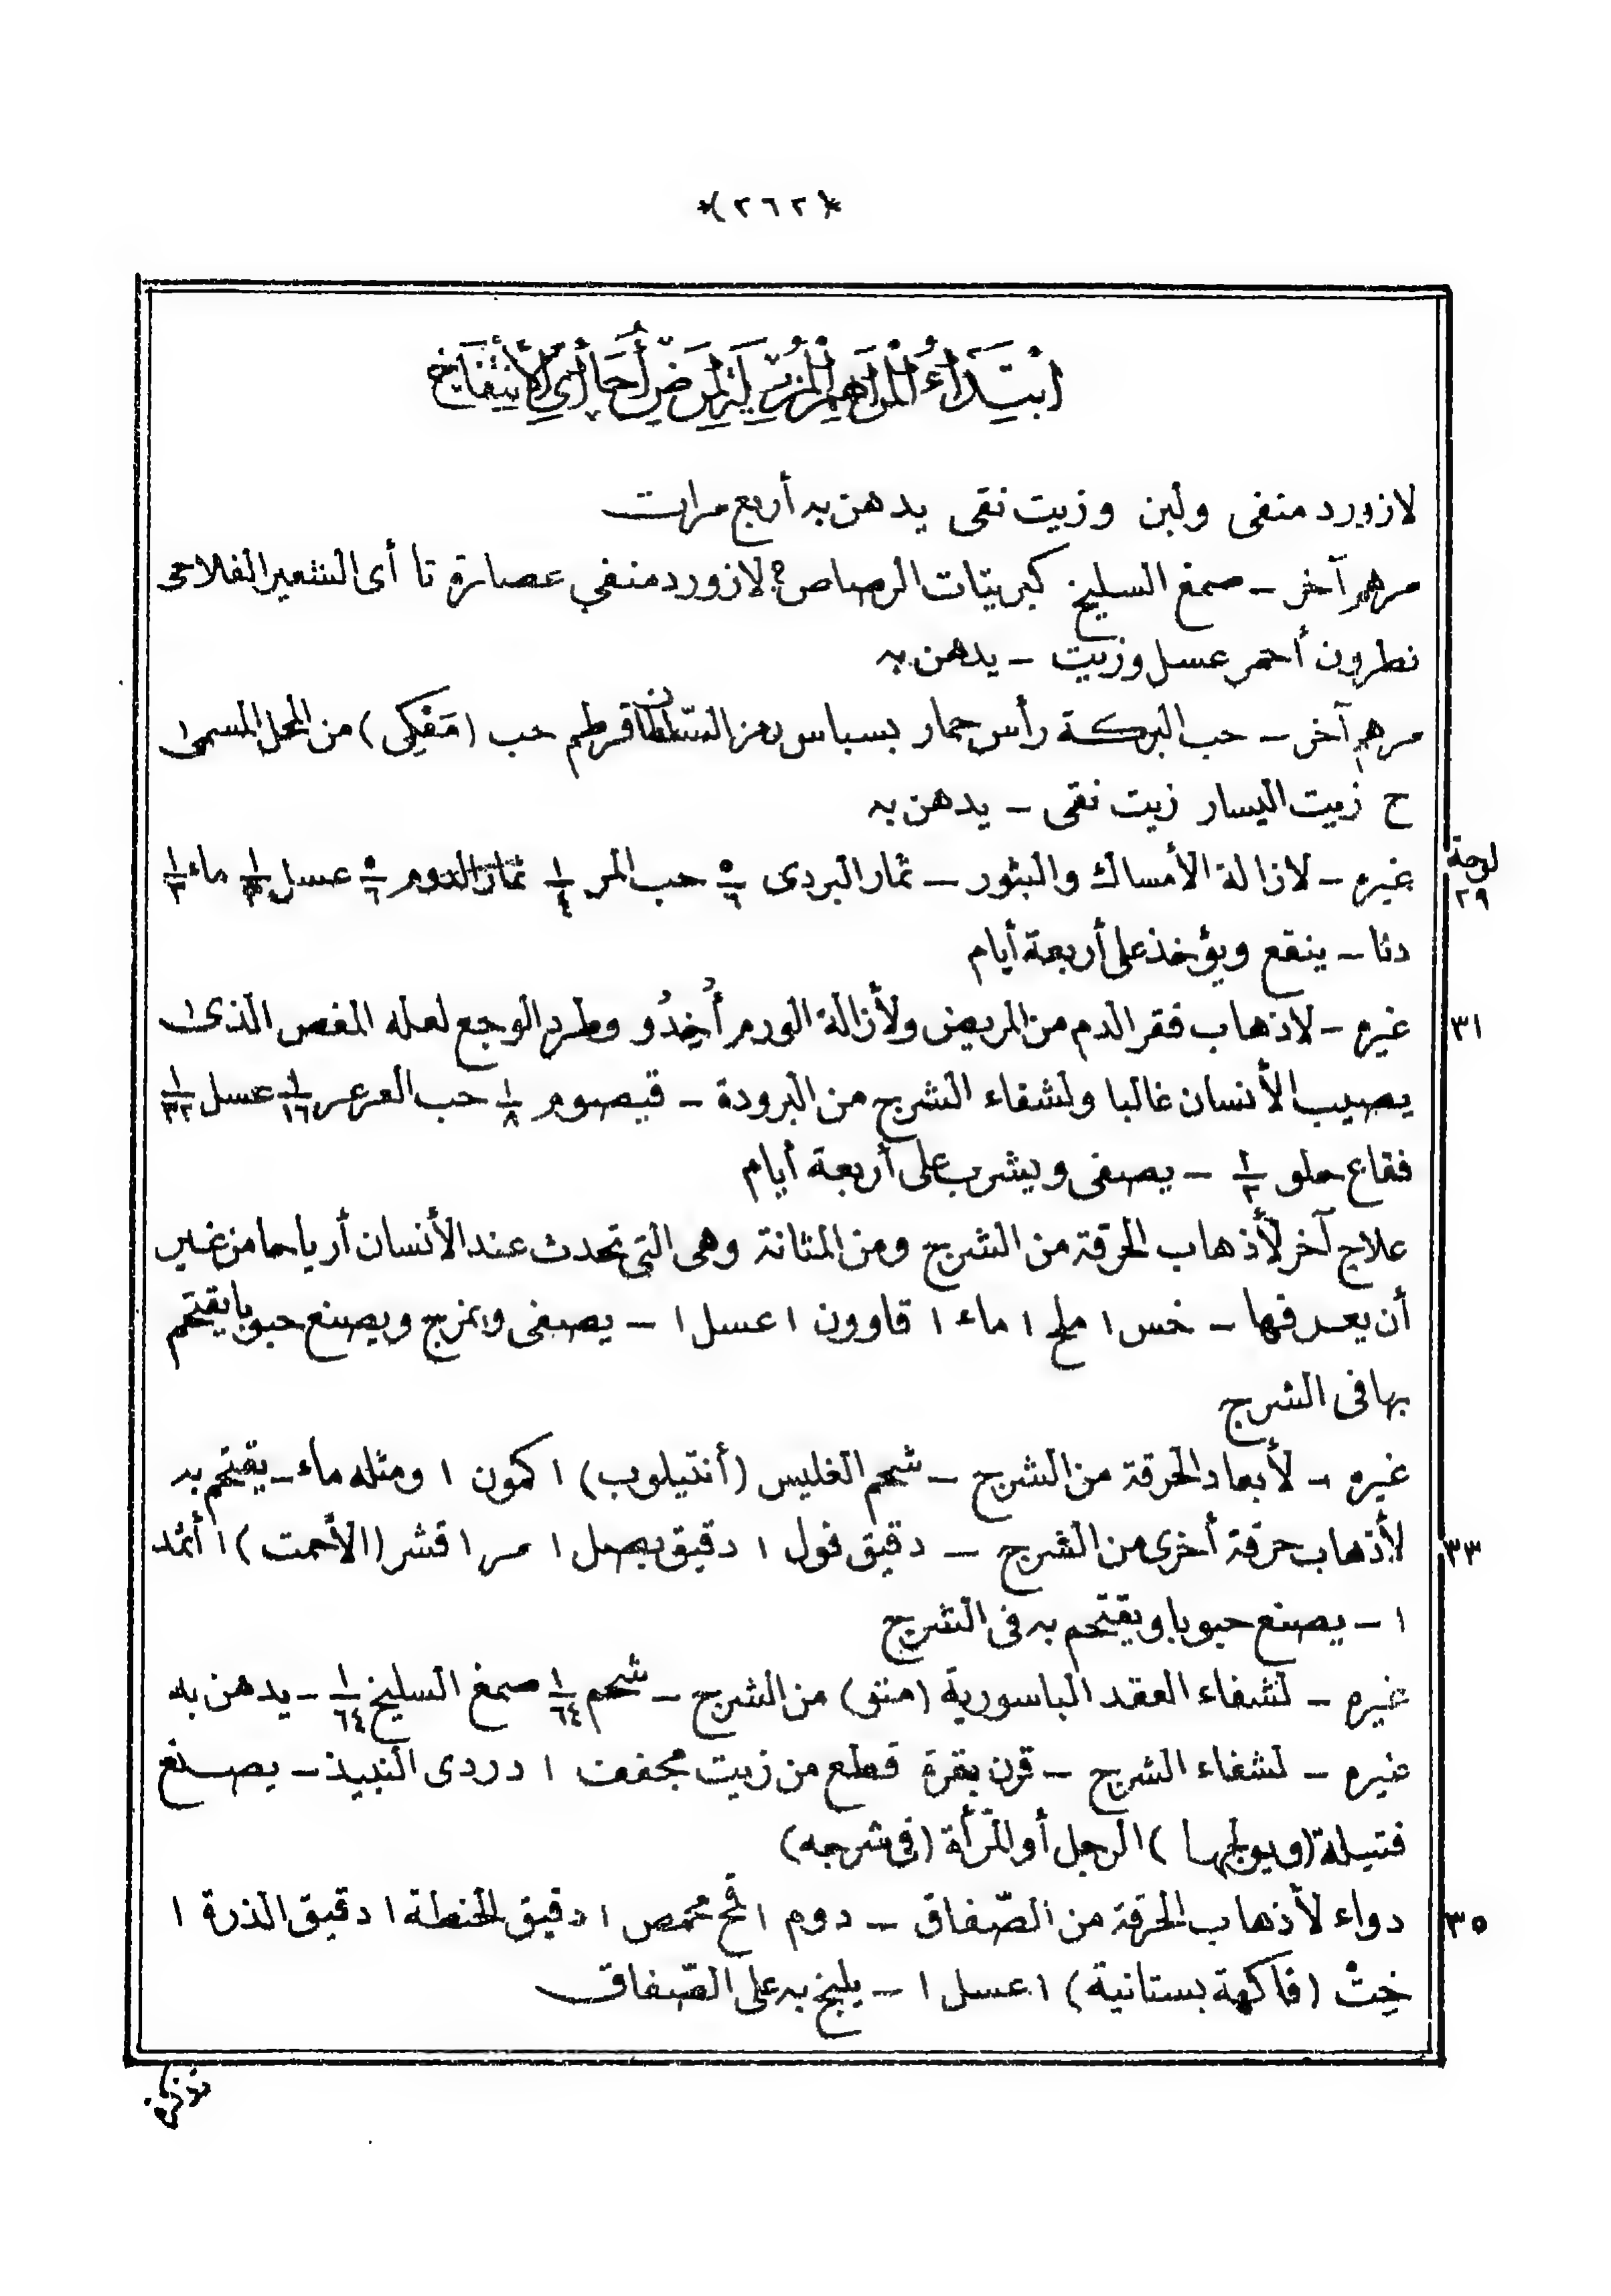 *(٢٦٢)*
ابْتِدَاءُ الْمَرَاهِمِ الْمُزِيلَةِ لِمَرَضِ أَحَا أَىِ الْأَنْتِفَاخِ
لازورد منفى ولبن وزيت نقى يدهن به أربع مرات
مرهم آخر ــ صمغ السليخ كبريتات الرصاص؟ لازورد منفي عصارة تا أى الشعير الفلاحى
نطرون أحمر عسل وزيت ــ يدهن به
مرهم آخر ــ حب البركة رأس حمار بسباس قرطم حب (مَفْكِى) من المحل المسمى
ح زيت اليسار زيت نقى ــ يدهن به
لوحة
٢٩
غيره ــ لازالة الأمساك والبثور ــ ثمار البردى ٥/٦ حب المر ١/٤ ثمار الدوم ٥/٦ عسل ماء ١/٢
دثا ــ ينقع ويؤخذ على أربعة أيام
٣١
غيره ــ لاذهاب فقر الدم من المريض ولأزالة الورم أُخِدُو وطرد الوجع لعله المغص الذى
يصيب الأنسان غالبا ولشفاء الشرج من البرودة ــ قيصوم ١/٨ حب العرعر ١/١٦ عسل ١/٣٢
فقاع حلو ١/٢ ــ يصفى ويشرب على أربعة أيام
علاج آخر لأذهاب الحرقة من الشرج ومن المثانة وهى التى تحدث عند الأنسان أرياحا من غير
أن يعرفها ــ خس ١ ملح ١ ماء ١ قاوون ١ عسل ١ ــ يصفى ويمزج ويصنع حبوبا يقتحم
بها فى الشرج
غيره ــ لأبعاد الحرقة من الشرج ــ شحم الغليس (أنتيلوب) ١ كمون ١ ومثله ماء ــ يقتحم به
٣٣
لأذهاب حرقة أخرى من الشرج ــ دقيق فول ١ دقيق بصل ١ مر ١ قشر (الأحمت) ١ أثمد
١ ــ يصنع حبوبا ويقتحم به فى الشرج
غيره ــ لشفاء العقد الباسورية (منتو) من الشرج ــ شحم ١/٦٤ صمغ السليخ ١/٦٤ ــ يدهن به
غيره ــ لشفاء الشرج ــ قرن بقرة قطع من زيت مجفف ١ دردى النبيذ ــ يصنع
فتيلة (ويولجها) الرجل أو المرأة (فى شرجه)
٣٥
دواء لأذهاب الحرقة من الصّفاق ــ دوم ١ قمح محمص ١ دقيق الحنطة ١ دقيق الذرة ١
خِتْ (فاكهة بستانية) ١ عسل ١ ــ يلبخ به على الصّفاق